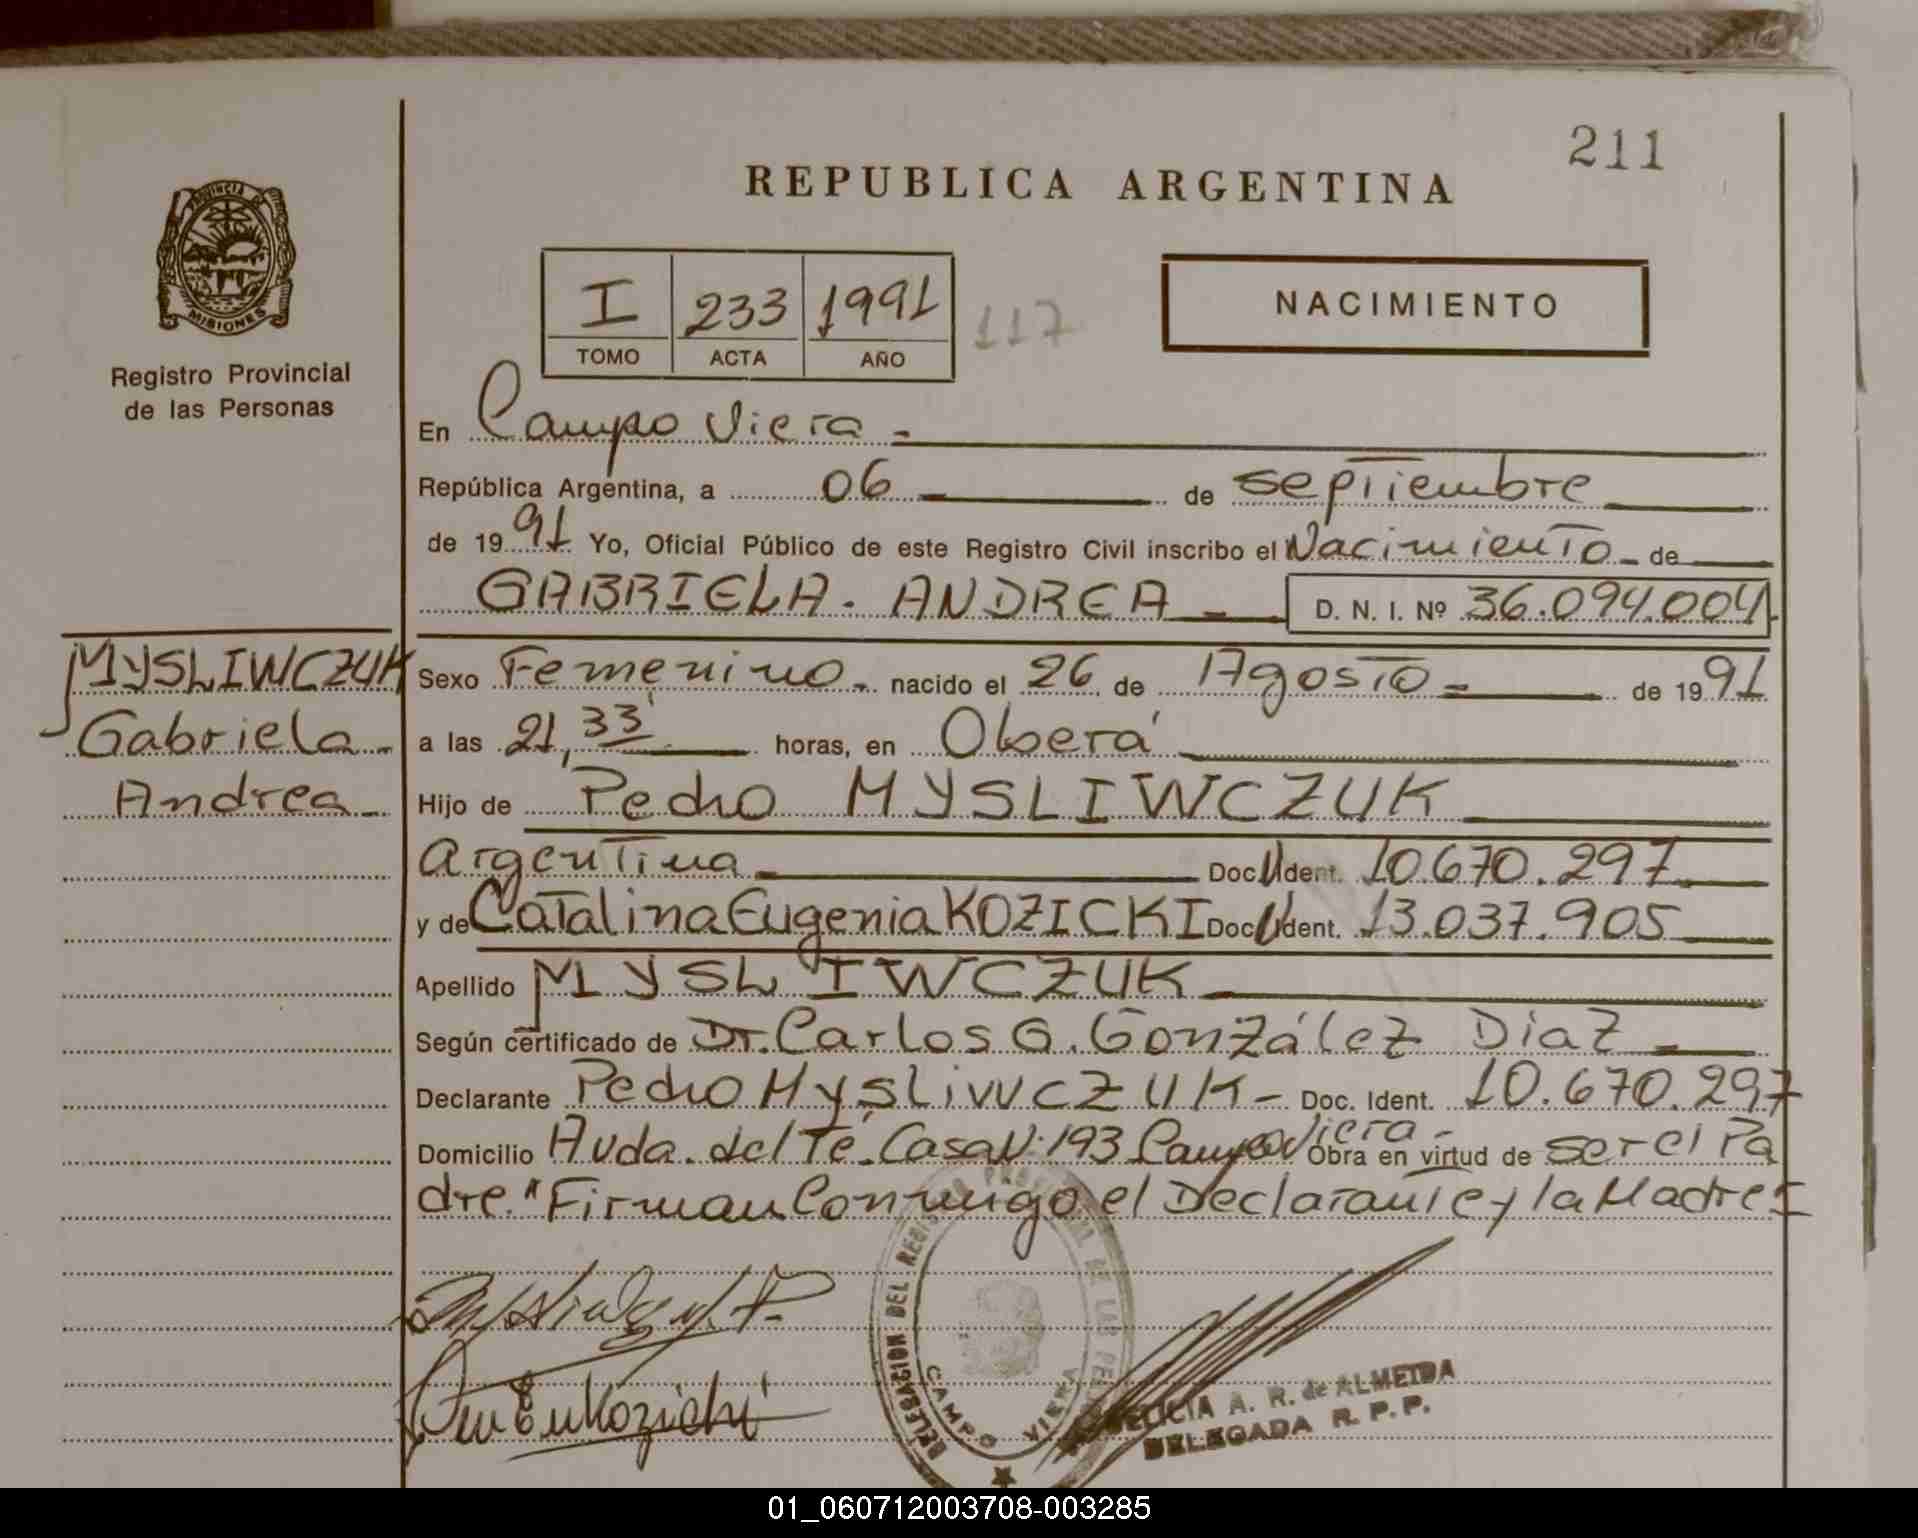 211
REPUBLICA ARGENTINA
PROVINCIA DE
MISIONES
Registro Provincial
de las Personas
I 233 1991
TOMO ACTA AÑO
117
NACIMIENTO
En Campo Viera -
República Argentina, a 06 de septiembre
de 1991 Yo, Oficial Público de este Registro Civil inscribo el Nacimiento - de
GABRIELA - ANDREA - D. N. I. Nº 36.094.004
MYSLIWCZUK
Gabriela -
Andrea -
Sexo Femenino - nacido el 26 de Agosto - de 1991
a las 21,33' horas, en Oberá
Hijo de Pedro MYSLIWCZUK
Argentina Doc. Ident. 10.670.297
y de Catalina Eugenia KOZICKI Doc. Ident. 13.037.905
Apellido MYSLIWCZUK
Según certificado de Dr. Carlos G. González Diaz -
Declarante Pedro MYSLIWCZUK - Doc. Ident. 10.670.297
Domicilio Avda. del Té. Casa N: 193 Campo Viera - Obra en virtud de ser el Pa
dre." Firman Conmigo el Declarante y la Madre
DELEGACION DEL REGISTRO PROVINCIAL DE LAS
CAMPO VIERA
A. R. de ALMEIDA
DELEGADA R. P. P.
01_060712003708-003285